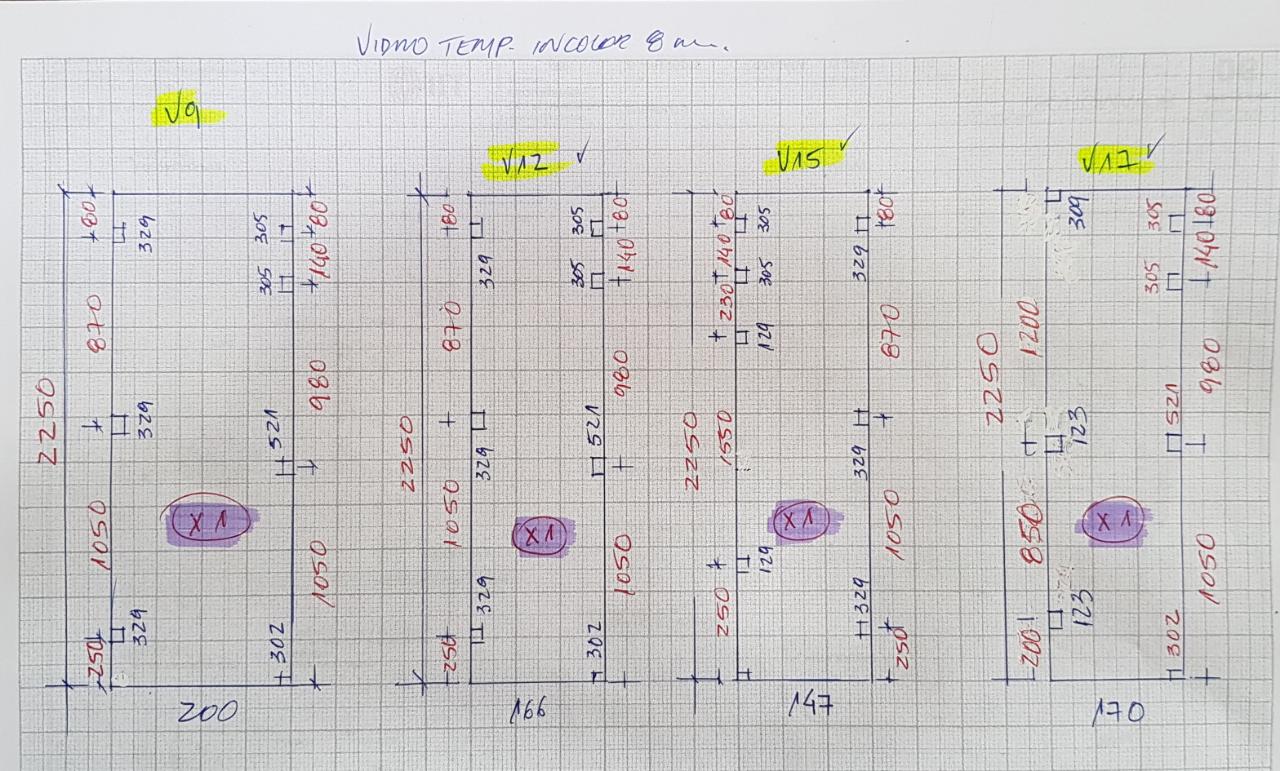 VIDRO TEMP. INCOLOR 8 m.
V9
2250
80
870
1050
250
329
329
329
305
305
521
302
80
140
980
1050
X1
200
V12 ✓
2250
80
870
1050
250
329
329
329
305
305
521
302
80
140
980
1050
X1
166
V15 ✓
2250
80
140
230
1550
250
305
305
129
129
329
329
329
80
870
1050
250
X1
147
V17 ✓
2250
1200
850
200
309
123
123
305
305
521
302
80
140
980
1050
X1
170